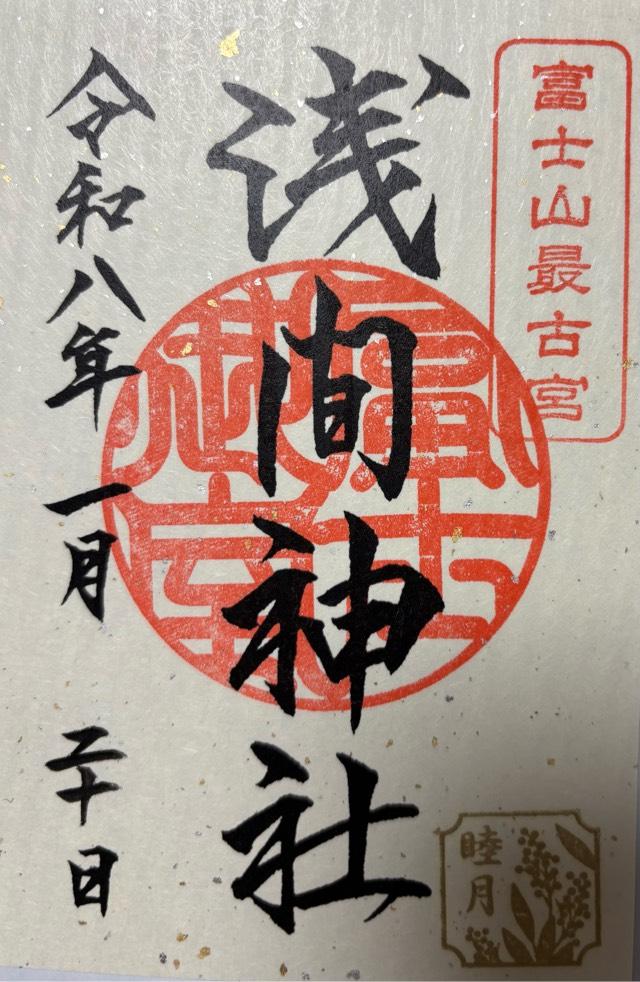 富士山最古宮
浅間神社
令和八年 一月 二十日
睦月